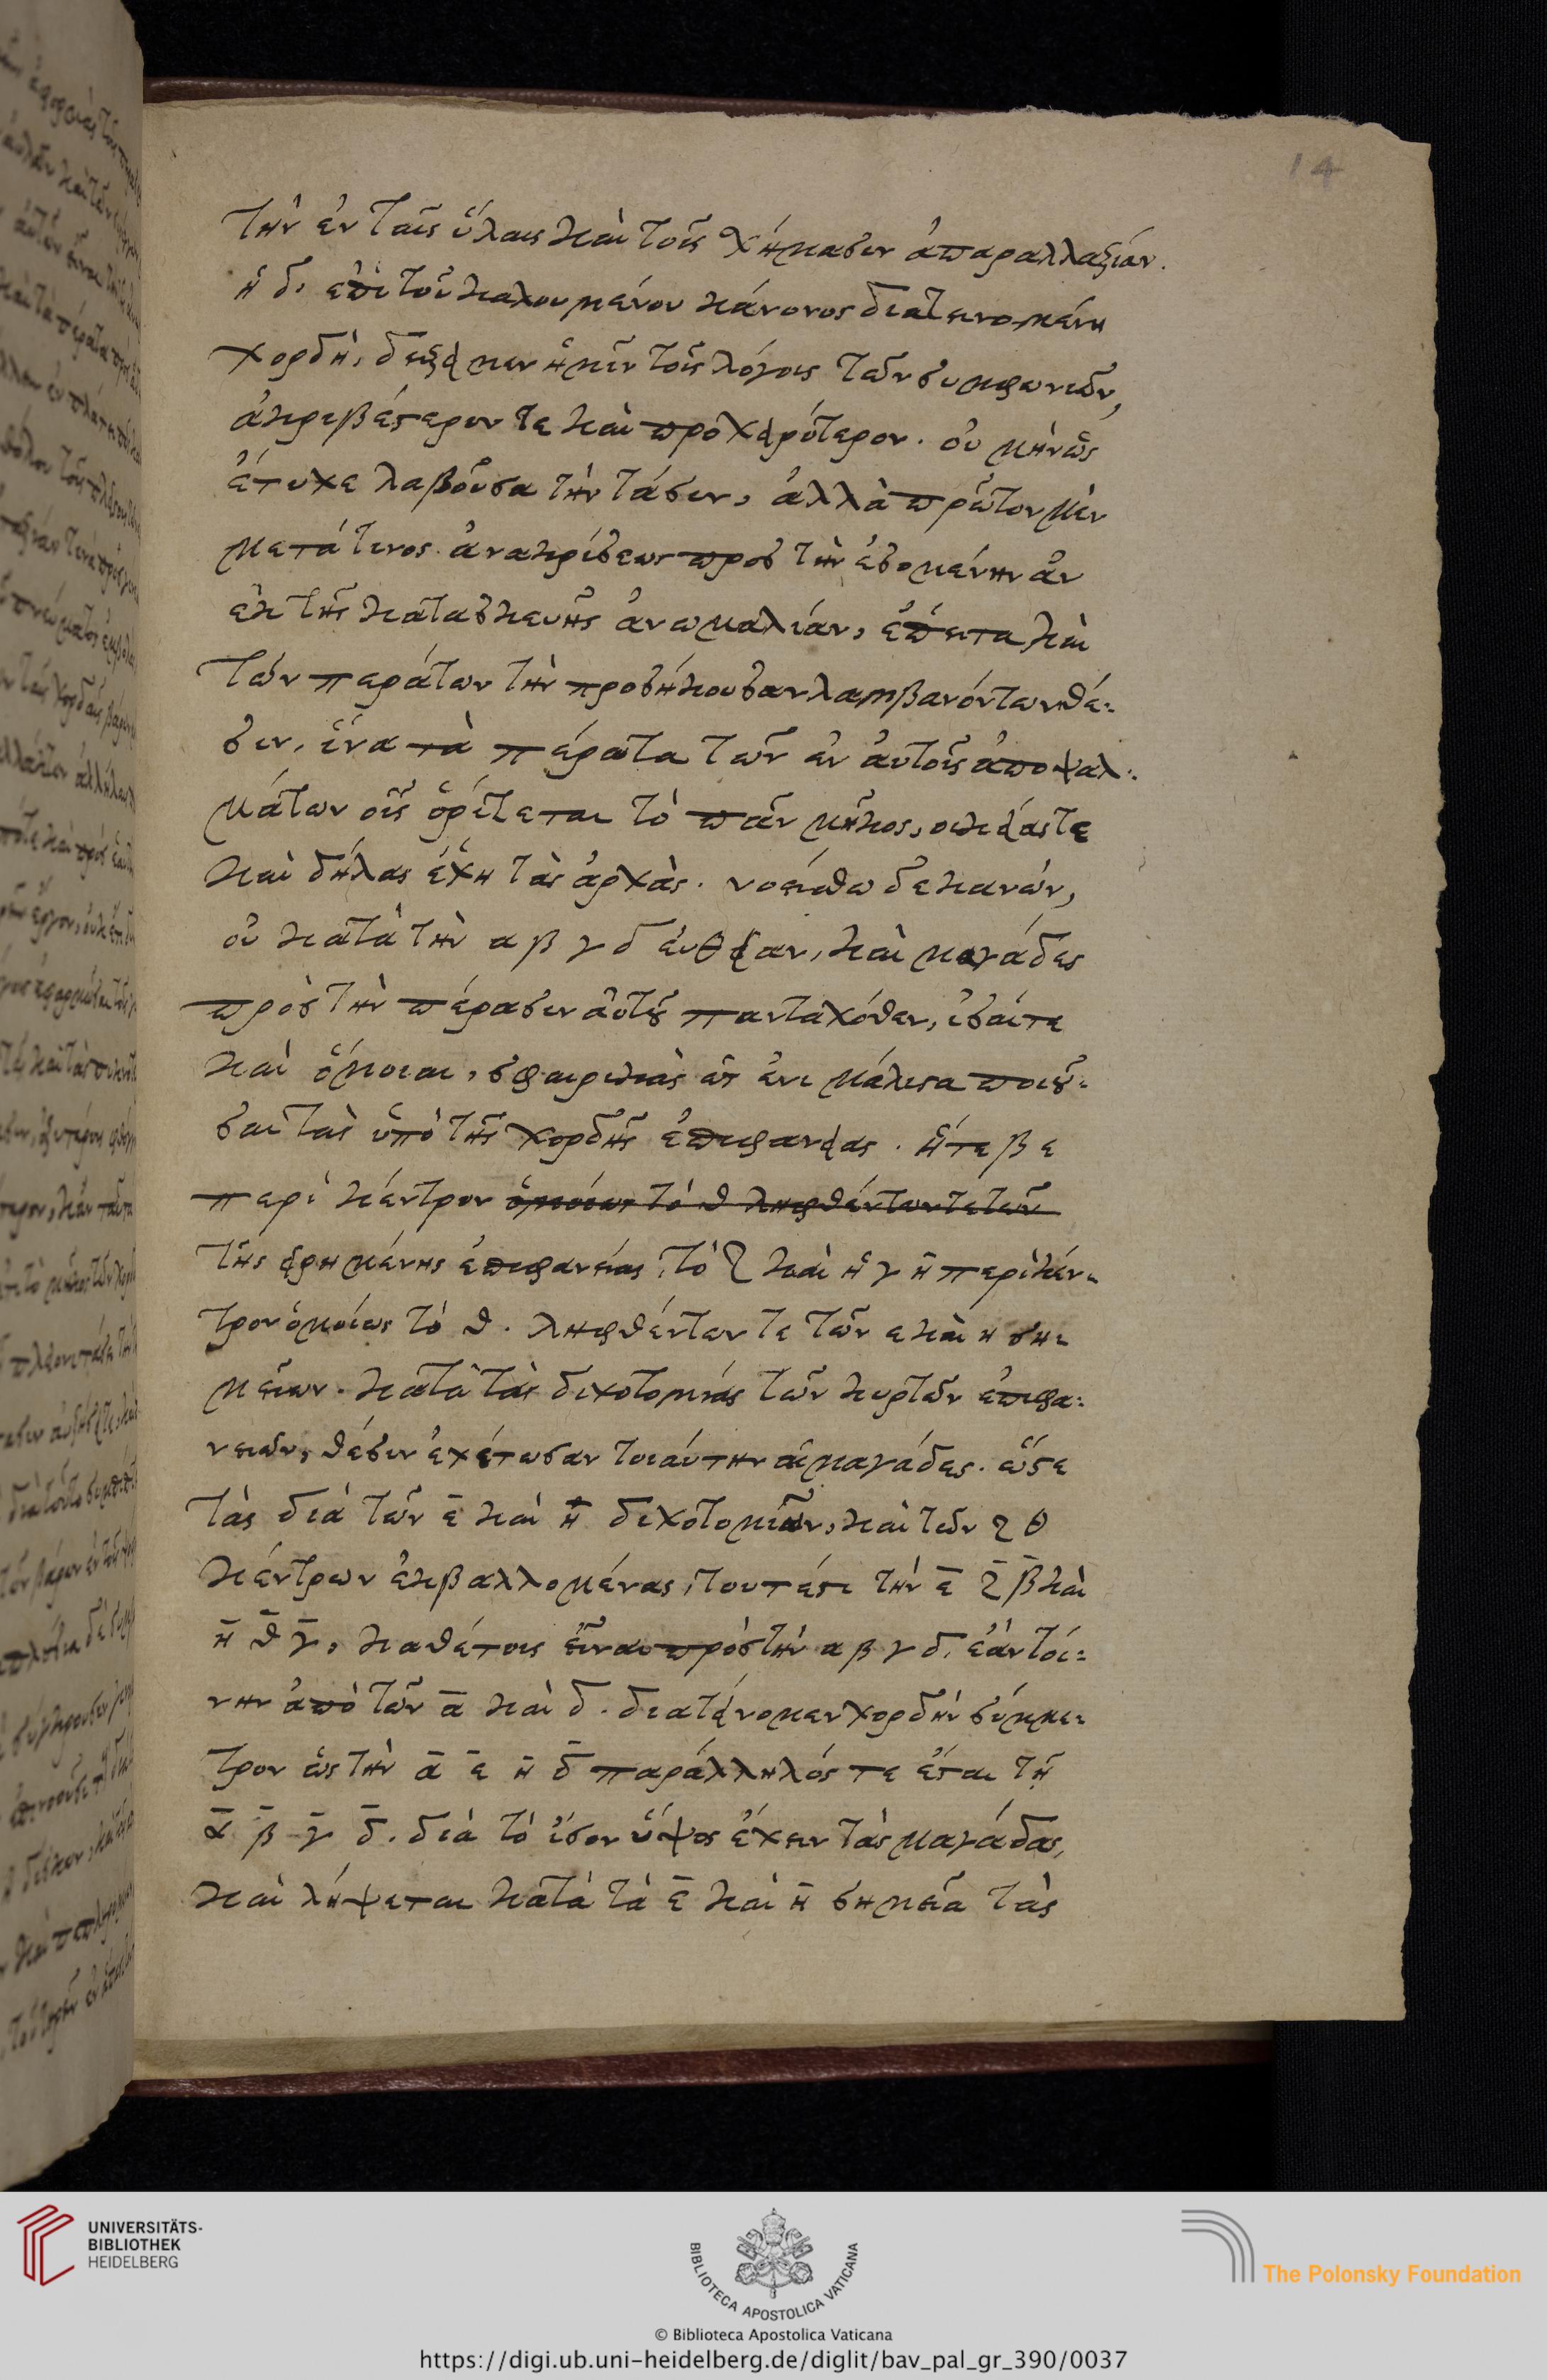 14
τὴν ἐν ταῖς ὕλαις καὶ τοῖς χήμασιν ἀπαραλλαξίαν.
ἡ δ' ἐπὶ τοῦ καλουμένου κάνονος διατεινομένη
χορδὴ, δείξει μεν ἡμῖν τοῖς λόγοις τῶν συμφωνιῶν,
ἀκριβέστερον τε καὶ προχειρότερον. οὐ μὴν ὡς
ἔτυχε λαβοῦσα τὴν τάσιν, ἀλλὰ πρῶτον μὲν
μετά τινος ἀνακρίσεως πρὸς τὴν ἐσομένην ἂν
ἐκ τῆς κατασκευῆς ἀνωμαλίαν, ἔπειτα καὶ
τῶν περάτων τὴν προσήκουσαν λαμβανόντων θέ-
σιν, ἵνα τὰ πέρατα τῶν ἐν ἀυτοῖς ἀποψαλ-
μάτων οἷς ὁρίζεται τὸ πᾶν μῆκος, οικείας τε
καὶ δήλας ἔχη τὰς ἀρχὰς. νοείσθω δε κανών,
οὑ κατὰ τὴν α β γ δ ἐυθεῖαν, καὶ μαγάδες
πρὸς τὴν πέρασιν ἀυτοῦ πανταχόθεν, ἰσαίτε
καὶ ὅμοιαι, σφαιρικὰς ὡς ἔνι μάλιστα ποιοῦ-
σαι τὰς ὑπὸ τῆς χορδῆς ἐπιφανείας. ἥτε β ε
περὶ κέντρον ὁμοίως τὸ θ ληφθέντων τε τῶν
τῆς εἰρημένης ἐπιφανείας, τὸ ζ καὶ ἡ γ η περὶ κέν-
τρον ὁμοίως τὸ θ. ληφθέντων τε τῶν ε καὶ η ση-
μείων. κατὰ τὰς διχοτομίας τῶν κυρτῶν ἐπιφα-
νειῶν, θέσιν ἐχέτωσαν τοιάυτην αἱ μαγάδες. ὥστε
τὰς διὰ τῶν ε̄ καὶ η̄ διχοτομιῶν, καὶ τῶν ζ θ
κέντρων ἐκβαλλομένας, τουτέστι τὴν ε̄ ζ̄ β̄ καὶ
η̄ θ̄ γ̄, καθέτοις εἶναι πρὸς τὴν α β γ δ. ἐὰν τοί-
νην ἀπὸ τῶν ᾱ καὶ δ. διατείνομεν χορδὴν σύμμε-
τρον ὡς τὴν ᾱ ε̄ η̄ δ̄ παράλληλός τε ἔσται τῇ
ᾱ β̄ γ̄ δ̄. διὰ τὸ ἴσον ὕψος ἔχειν τὰς μαγάδας,
καὶ λήψεται κατὰ τὰ ε̄ καὶ η̄ σημεῖα τὰς
UNIVERSITÄTS-
BIBLIOTHEK
HEIDELBERG
BIBLIOTECA APOSTOLICA VATICANA
The Polonsky Foundation
© Biblioteca Apostolica Vaticana
https://digi.ub.uni-heidelberg.de/diglit/bav_pal_gr_390/0037